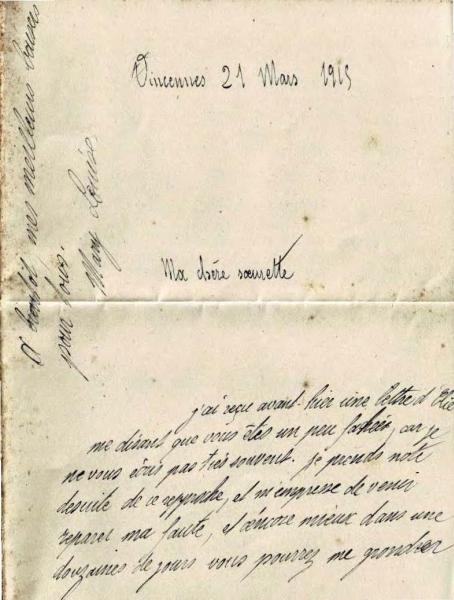 Vincennes 21 Mars 1915
Ma chère sœurette
j'ai reçue avant-hier une lettre d'
me disant que vous êtes un peu car je
ne vous écris pas très souvent. Je prends note
desuite de ce reproche, et m'empresse de venir
reparer ma faute, et encore mieux dans une
douzaines de jours vous pourrez me gronder
A bientôt mes meilleurs baisers
pour tous.
Mary Louise